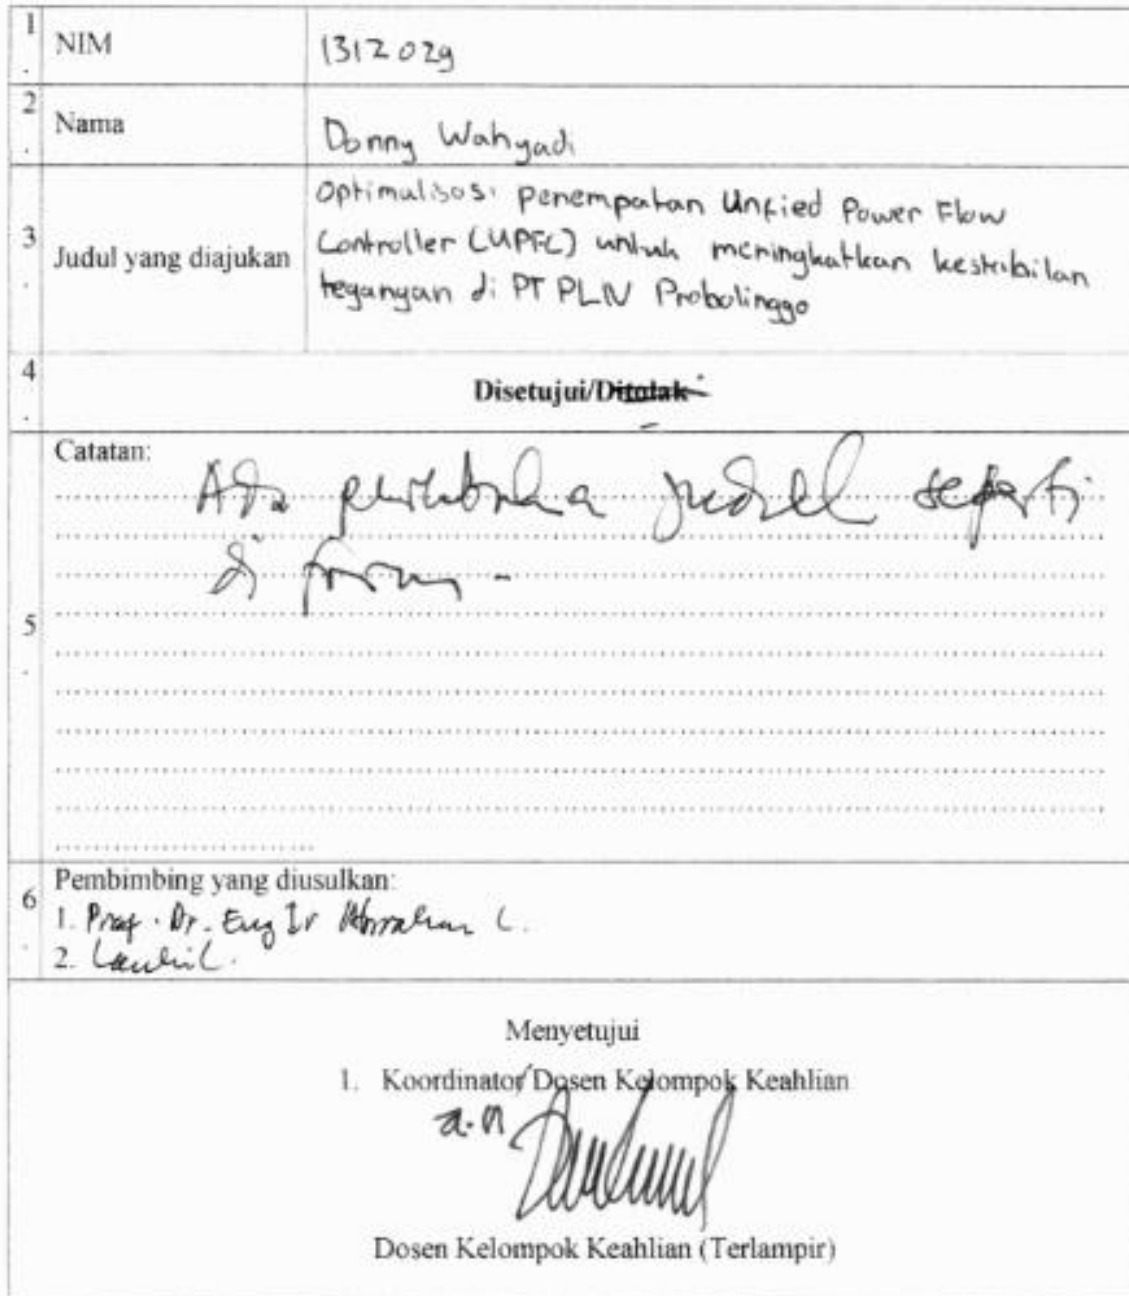 1.
NIM
1312029
2.
Nama
Donny Wahyadi
3.
Judul yang diajukan
Optimalisasi penempatan Unfied Power Flow
Controller (UPFC) untuk meningkatkan kestabilan
tegangan di PT PLN Probolinggo
4.
Disetujui/Ditolak
5.
Catatan:
Ada judul seperti
di forum -
6.
Pembimbing yang diusulkan:
1. Prof. Dr. Eng Ir Abraham L.
2.
Menyetujui
1. Koordinator/Dosen Kelompok Keahlian
a.n
Dosen Kelompok Keahlian (Terlampir)